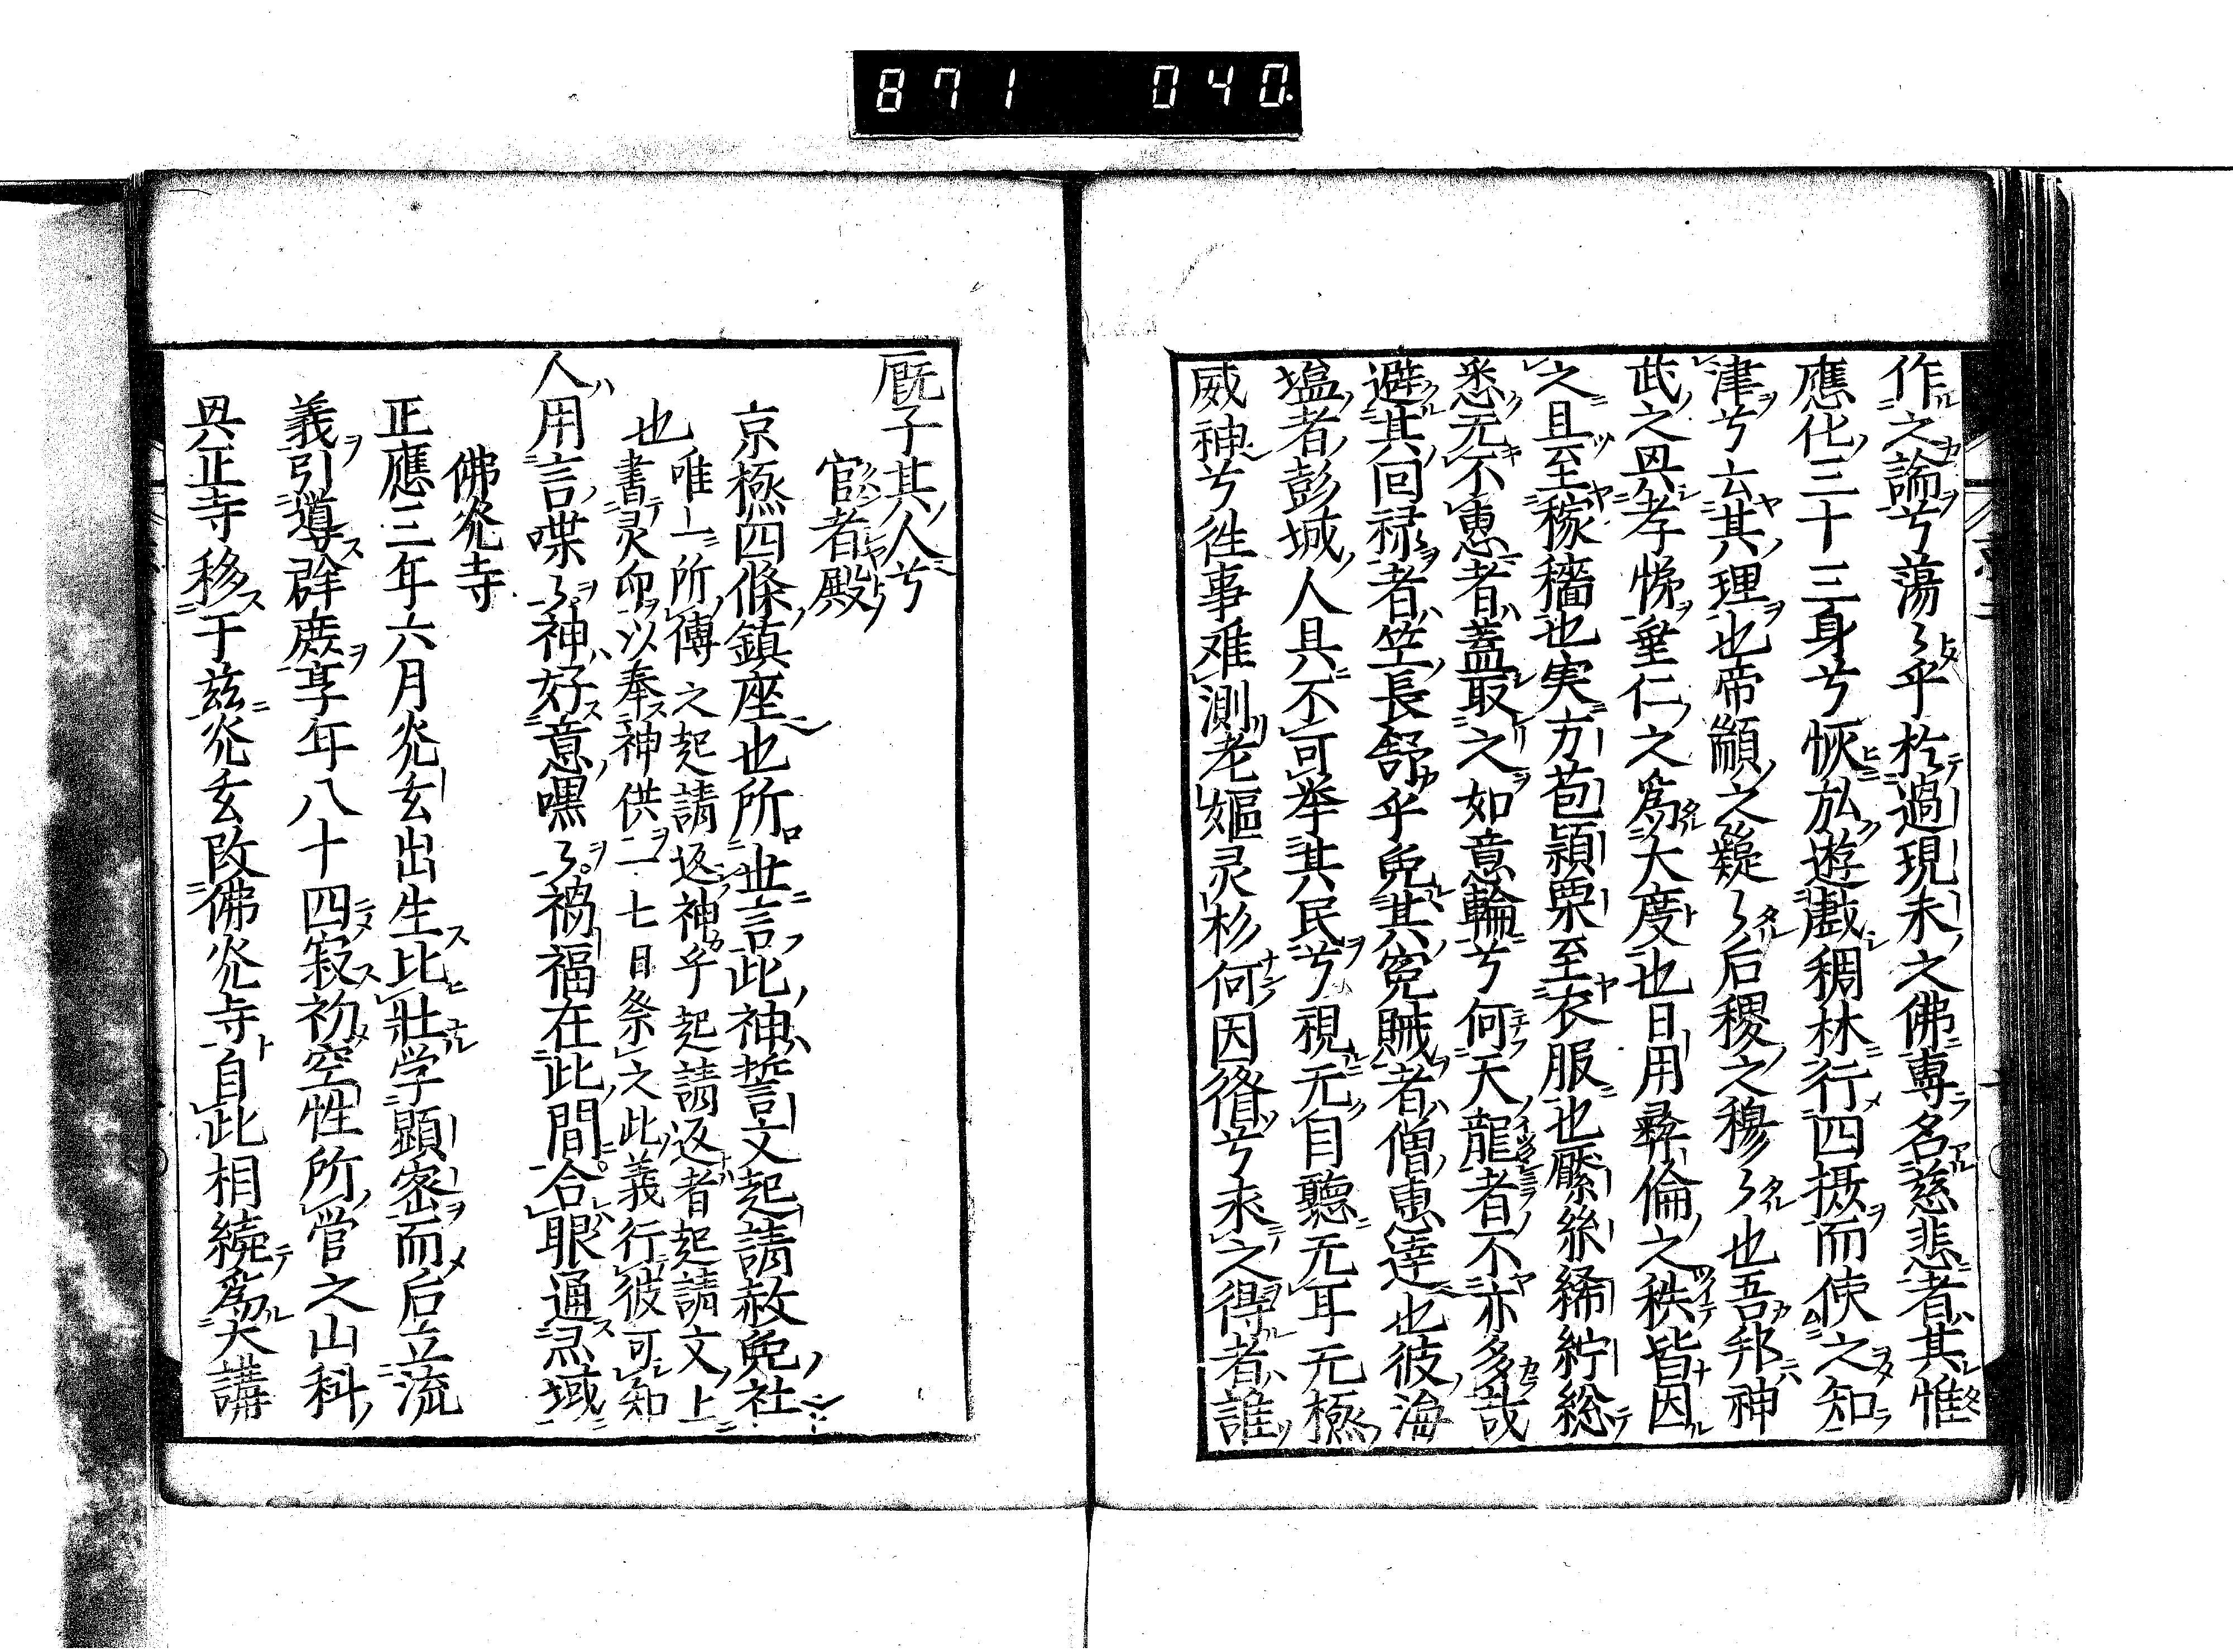 871 040
作之論兮蕩〻乎於過現未之佛專名慈悲者其惟
應化三十三身兮恢弘遊戯稠林行四摂而使之知
津兮云其理也帝顓之嶷〻后稷之穆〻也吾邦神
武之與孝悌垂仁之為大度也日用彜倫之秩皆因
之且至稼穡也実方苞頴栗至衣服也繁絲絺紵総
悉无不恵者蓋取之如意輪兮何天龍者不亦多哉
避其回禄者竺長舒乎免其寃賊者僧恵達也彼海
塩者彭城人具不可举其民兮視无目聽无耳无極
威神兮徃事难測老嫗灵杉何因後兮求之得者誰
厩子其人兮
官者殿
京極四條鎮座也所世言此神誓文起請赦免社
也唯一所傳之起請返神乎起請返者起請文上
書灵印以奉神供二七日祭之此義行彼可知
人用言喋〻神好意嘿〻禍福在此間合眼通炁域
佛炛寺
正應三年六月炛玄出生比壯学顕密而后立流
義引導群庶享年八十四寂初空性所営之山科
興正寺移于茲炛玄改佛炛寺自此相続為大講